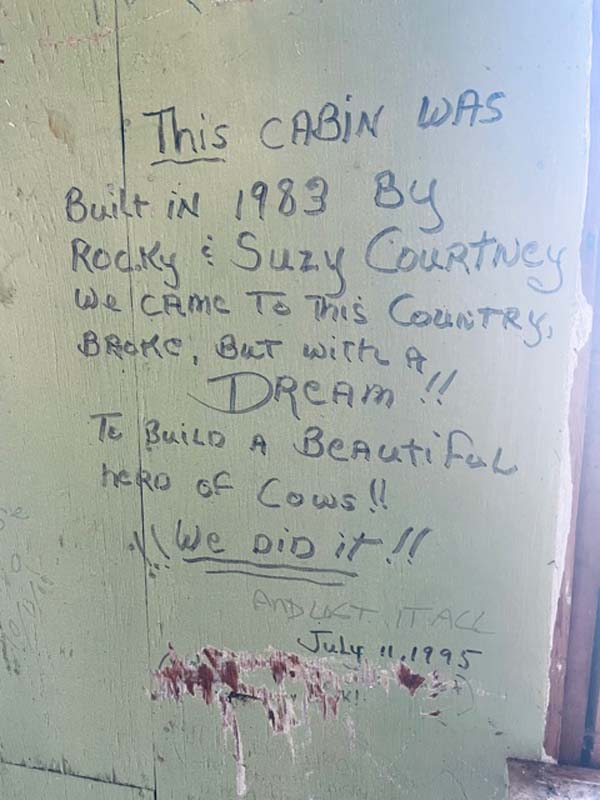 This CABiN WAS
Built iN 1983 By
Rocky & Suzy Courtney
We CAMe To This Country,
BROKe, But with A
DReam!!
To Build A Beautiful
heRD of Cows!!
We DiD it!!
And LOST IT ALL
July 11, 1995